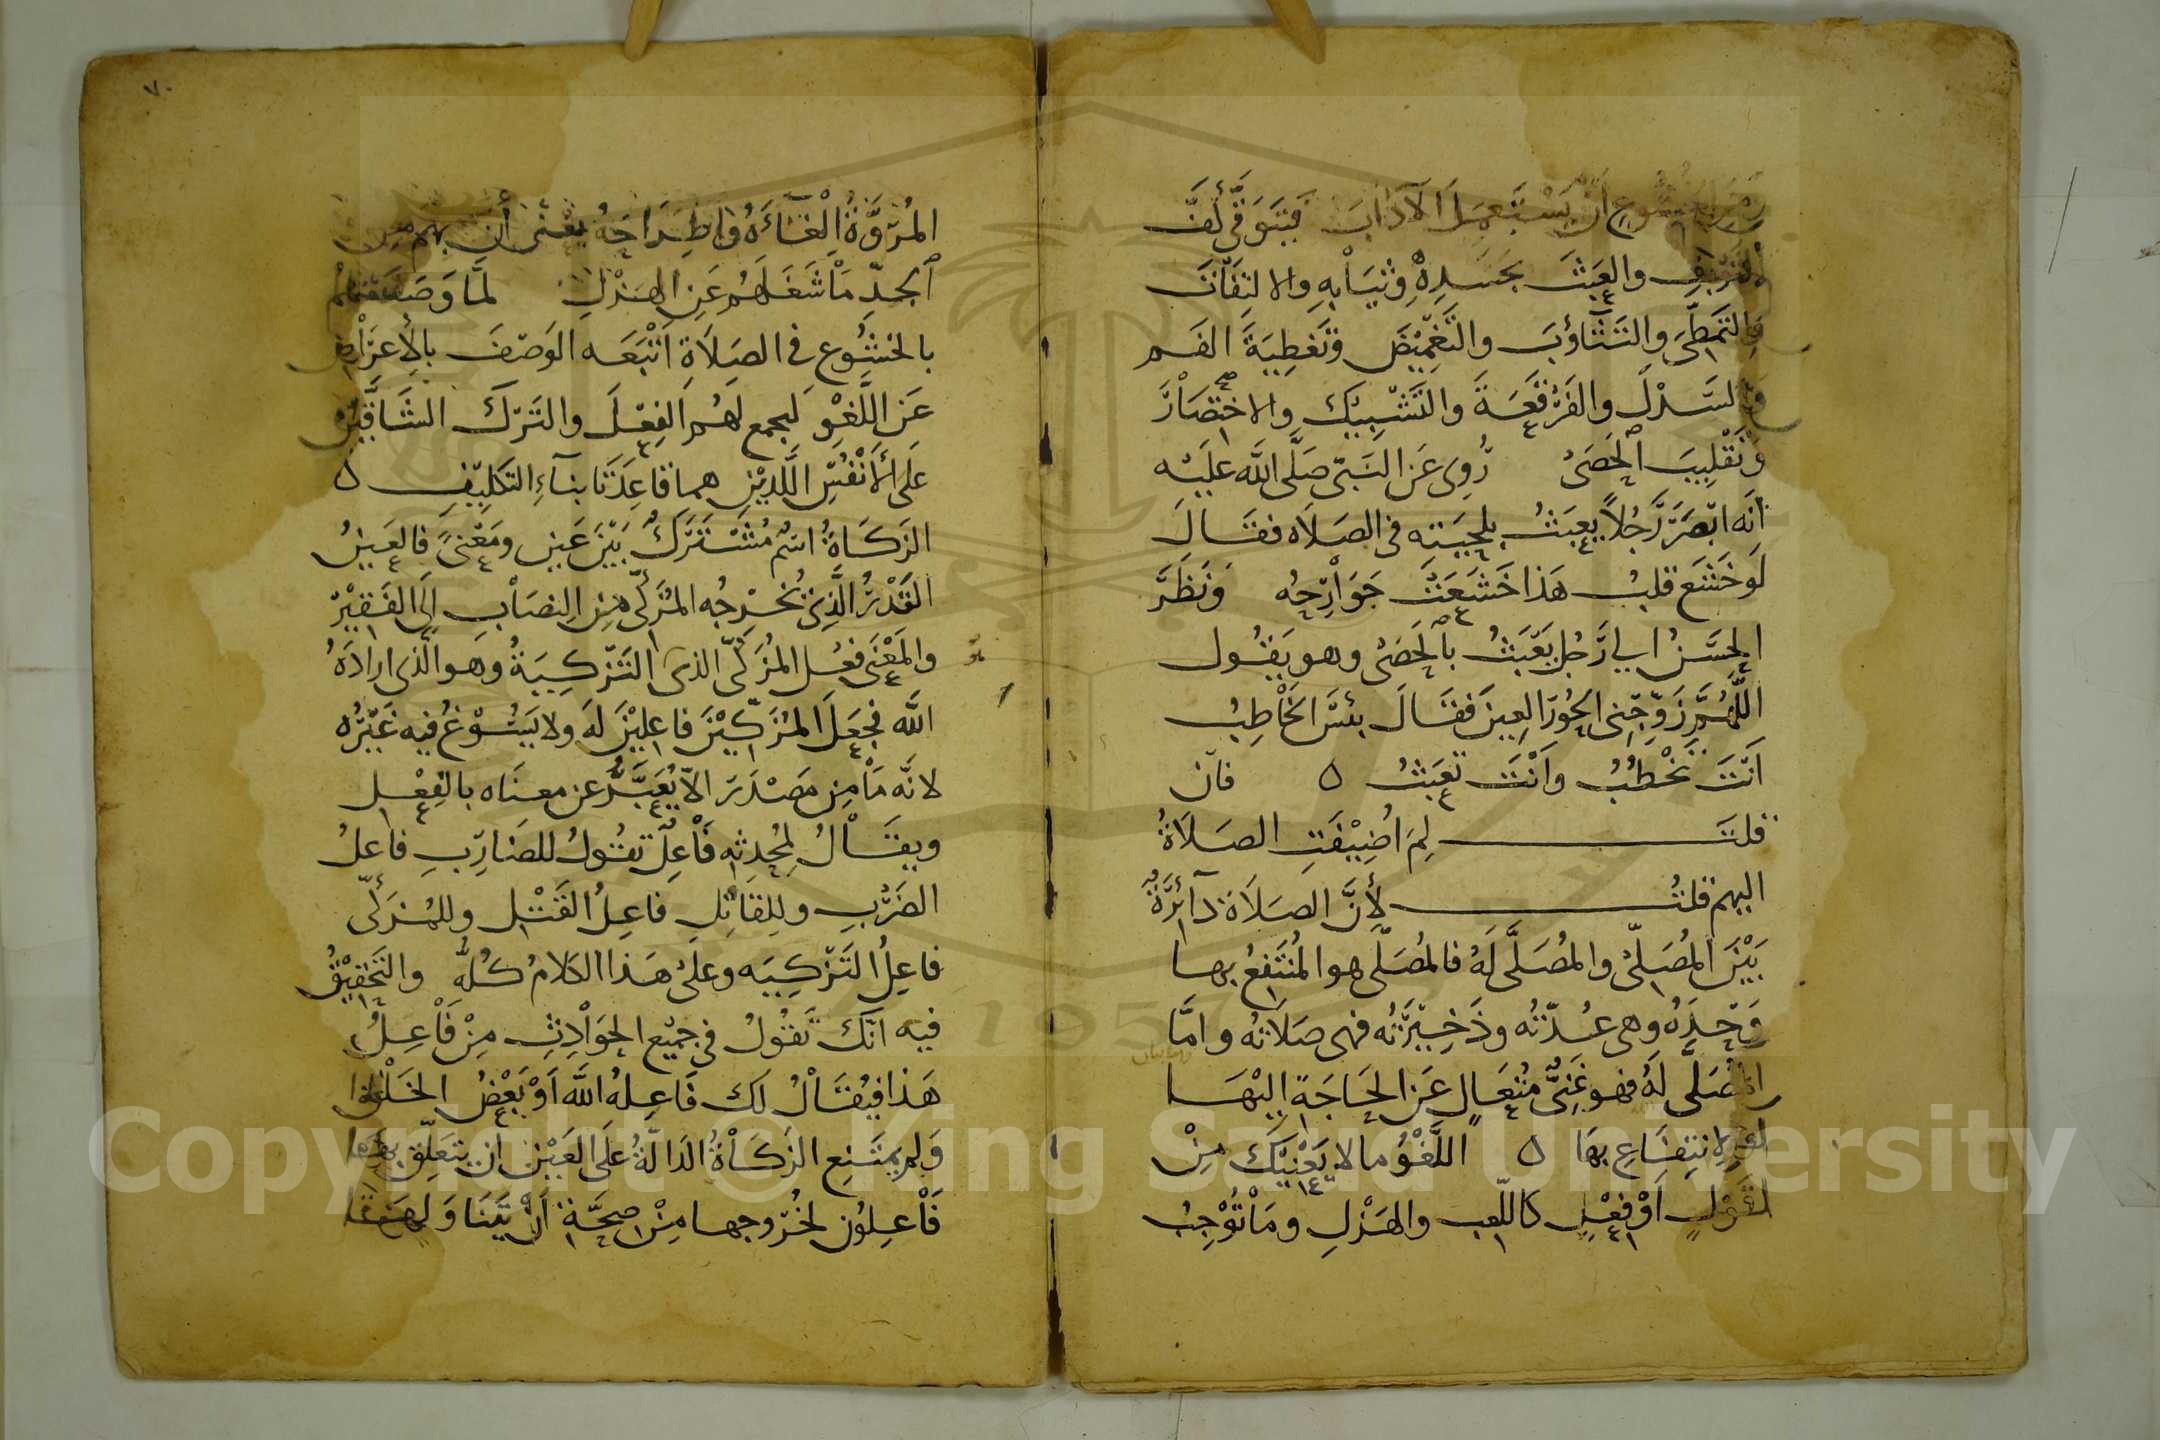 ومن الخشوع أن يستعمل الآداب فيتوقى كف
الثوب والعبث بجسده وثيابه والالتفات
والتمطي والتثاؤب والتغميض وتغطية الفم
والسدل والفرقعة والتشبيك والاختصار
وتقليب الحصى روي عن النبي صلى الله عليه
أنه ابصر رجلا يعبث بلحيته في الصلاه فقال
لو خشع قلب هذا خشعت جوارحه ونظر
الحسن إلى رجل يعبث بالحصى وهو يقول
اللهم زوجني الحور العين فقال بئس الخاطب
أنت تخطب وأنت تعبث ٥ فان
قلت لم أضيفت الصلاة
اليهم قلت لأن الصلاة دائرة
بين المصلي والمصلى له فالمصلي هو المنتفع بها
وحده وهي عدته وذخيرته فهي صلاته واما
المصلى له فهو غني متعال عن الحاجة اليها
والانتفاع بها ٥ اللغو ما لا يعنيك من
قول أو فعل كاللعب والهزل وما توجب
٧٠
المروة الغاءه واطراحه يعني أن بهم من
الجد ما شغلهم عن الهزل لما وصفهم
بالخشوع في الصلاة اتبعه الوصف بالإعراض
عن اللغو ليجمع لهم الفعل والترك الشاقين
على الأنفس اللذين هما قاعدتا بناء التكليف ٥
الزكاة اسم مشترك بين عين ومعنى فالعين
القدر الذي يخرجه المزكي من النصاب إلى الفقير
والمعنى فعل المزكي الذي التزكية وهو الذي اراده
الله فجعل المزكين فاعلين له ولا يسوغ فيه غيره
لانه ما من مصدر الا يعبر عن معناه بالفعل
ويقال لمحدثه فاعل تقول للضارب فاعل
الضرب وللقاتل فاعل القتل وللمزكي
فاعل التزكيه وعلى هذا الكلام كله والتحقيق
فيه انك تقول في جميع الحوادث من فاعل
هذا فيقال لك فاعله الله أو بعض الخلق
ولم يمتنع الزكاة الدالة على العين ان يتعلق بها
فاعلون لخروجها من صحة ان يتناولها